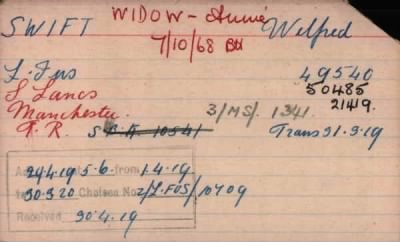 SWIFT WIDOW - Annie Wilfred
7/10/68 BH
L. Fus 49540
S Lancs 50485
Manchester. 3/MS/. 1341 21419.
R. R. S.B.A. 10541 Trans 31.3.19
29.4.19 5.6. from 1.4.19.
30.3.20 Chelsea No. 2/L.FUS/10409
Received 30.4.19